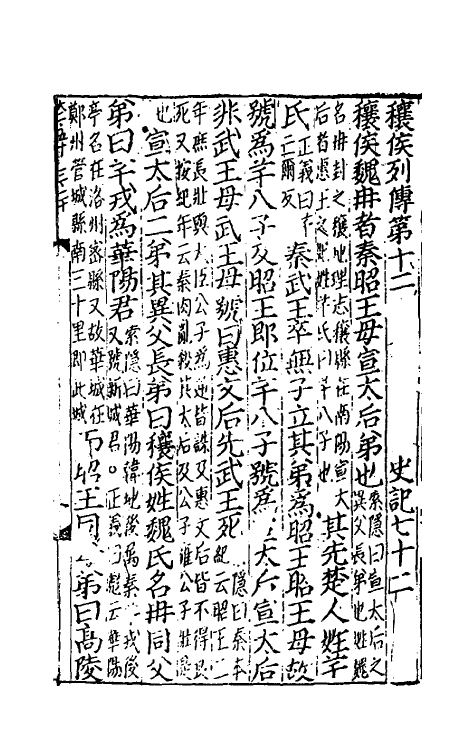 穰侯列傳第十二 史記七十二
穰侯魏冉者秦昭王母宣太后弟也 索隱曰宣太后之異父長弟也姓魏
名冉封之穰地理志穰縣在南陽宣大后者惠王之妃姓芊氏曰芊八子也 其先楚人姓芊
氏 正義曰亡爾反 秦武王卒無子立其弟爲昭王昭王母故
號爲芊八子及昭王即位芊八子號爲宣太后宣太后
非武王母武王母號曰惠文后先武王死 索隱曰秦本紀云昭王二
年庶長壯與大臣公子爲逆皆誅及惠文后皆不得良死又按紀年云秦內亂殺其太后及公子雍公子壯是
也 宣太后二弟其異父長弟曰穰侯姓魏氏名冉同父
弟曰芊戎爲華陽君 索隱曰華陽韓地後屬秦 戎後又號新城君。正義曰彪云華陽
亭名在洛州密縣又故華城在鄭州管城縣南三十里即此城 而昭王同母弟曰高陵